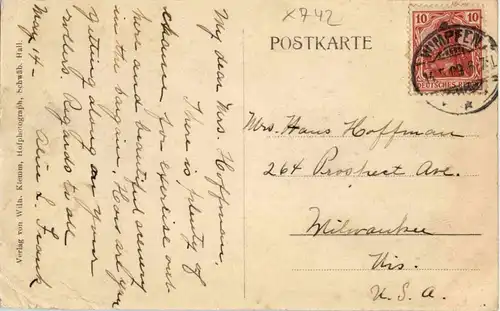 X742
POSTKARTE
10 10
DEUTSCHES REICH
WIMPFEN
My dear Mrs. Hoffman,
There is plenty of
chance for exercise out
here and beautiful scenery
in the bargain. How are you
getting along on your
orders. Regards to all
Alice L.
May 14 –
Mrs. Hans Hoffman
264 Prospect Ave.
Milwaukee
Wis.
U.S.A.
Verlag von Wilh. Klemm, Hofphotograph, Schwäb. Hall.